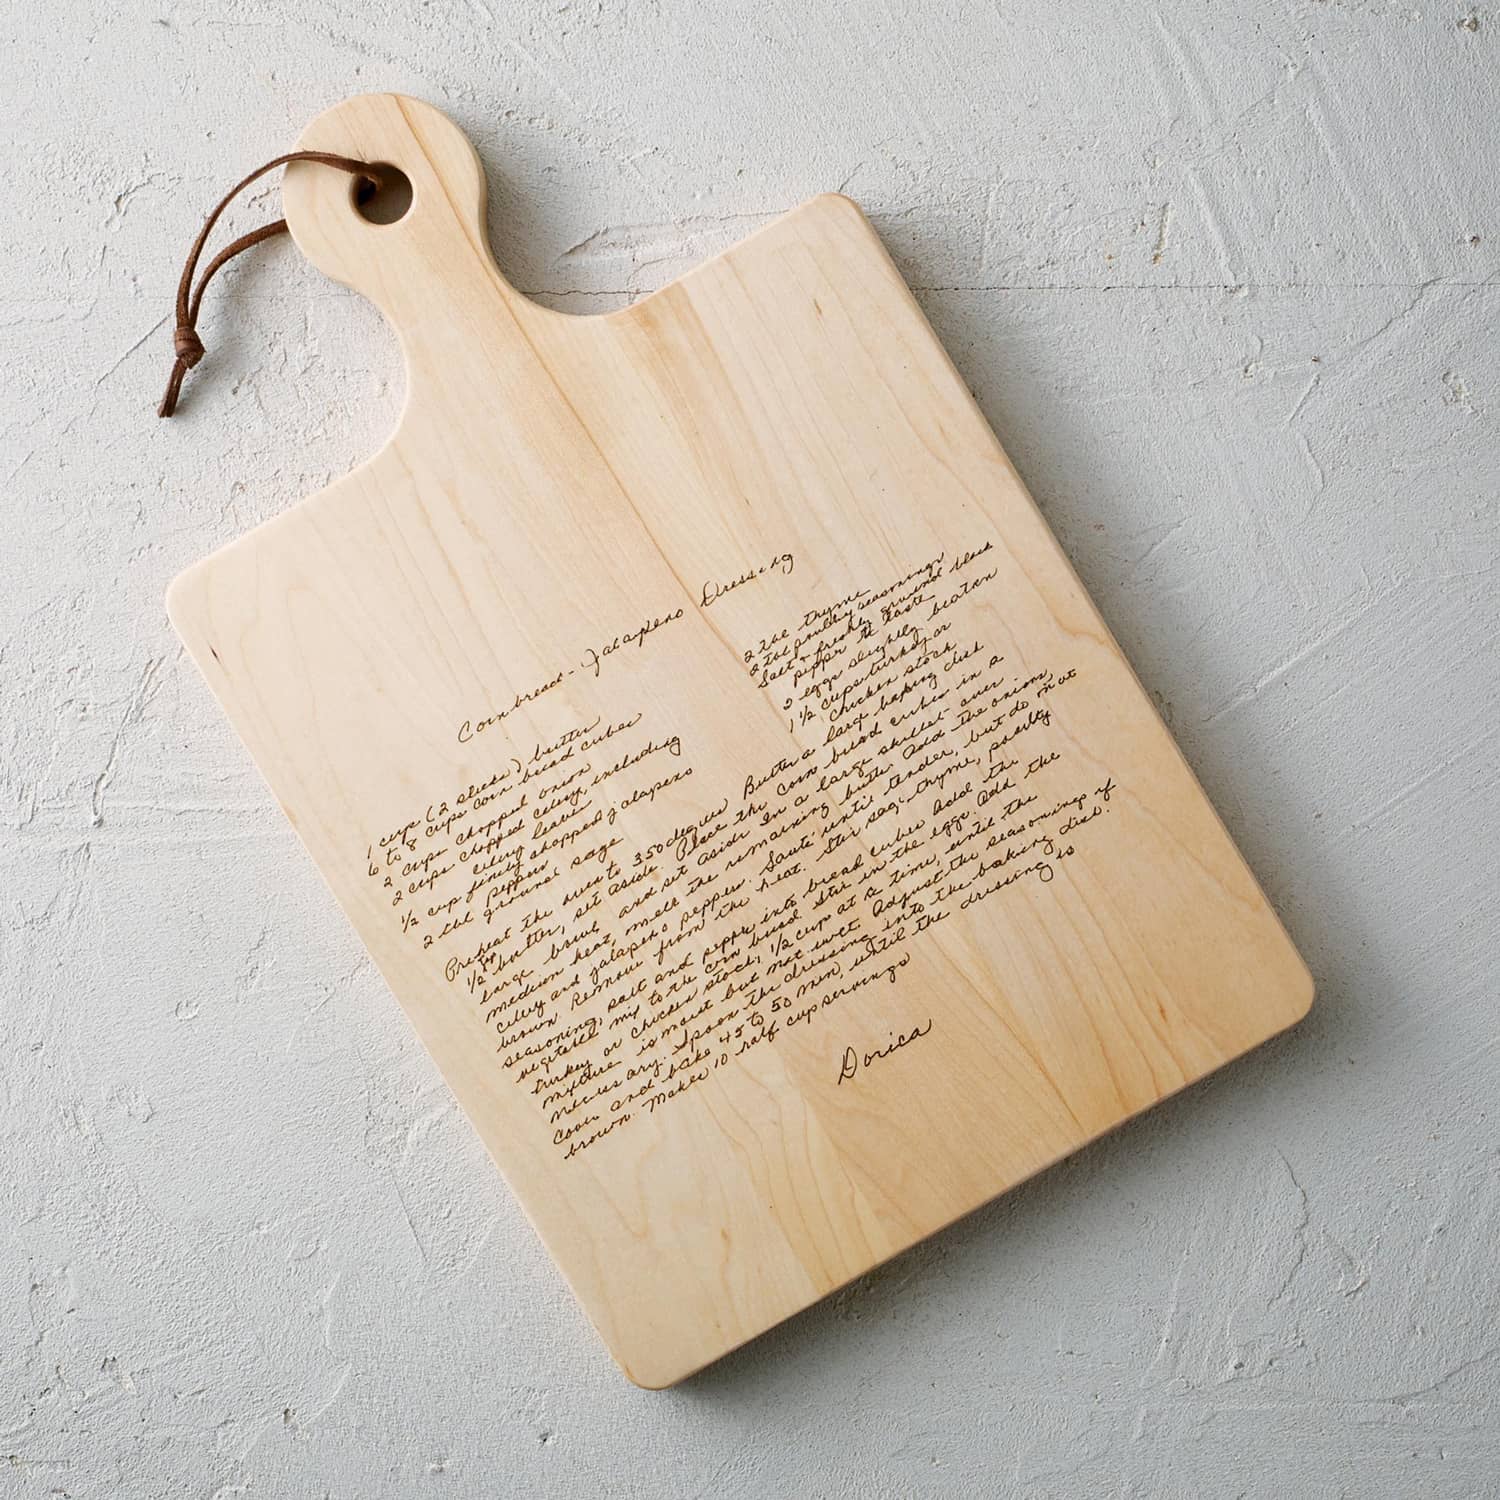 Cornbread-Jalapeno Dressing
1 cup (2 sticks) butter
6 to 8 cups corn bread cubes
2 cups chopped onion
2 cups chopped celery, including
celery leaves
1/2 cup finely chopped jalapeno
peppers
2 tbl ground sage
2 tbl thyme
2 tbl poultry seasonings
Salt & freshly ground black
pepper to taste
eggs slightly beaten
1 1/2 cups turkey or
chicken stock
Preheat the oven to 350 degrees Butter a large baking dish
1/2 butter, set aside. Place the corn bread cubes in a
large bowl and set aside In a large skillet over
medium heat, melt the remaining butter. Add the onions,
celery and jalapeno peppers. Sauté until tender, but do not
brown. Remove from the heat. Stir sage, thyme, poultry
seasoning, salt and pepper into bread cubes Add the
vegetable mix to the corn bread. Stir in the eggs. Add the
turkey or chicken stock, 1/2 cup at a time, until the
mixture is moist but not wet. Adjust the seasonings if
necessary. Spoon the dressing into the baking dish.
Cover and bake 45 to 50 min, until the dressing is
brown. Makes 10 half cup servings
Dorica